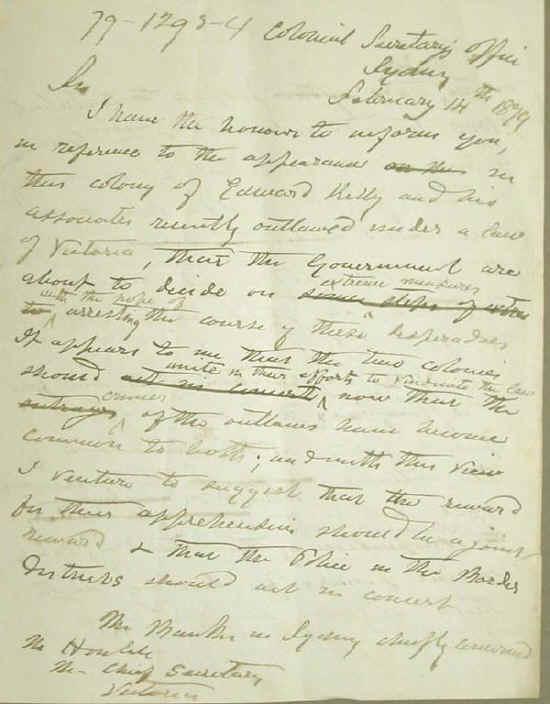 79-1293-4 Colonial Secretary's Office
Sydney
February 14th 1879
Sir
I have the honour to inform you,
in reference to the appearance on this in
this colony of Edward Kelly and his
associates recently outlawed under a law
of Victoria, that the Government are
extreme measures
about to decide on some steps of
with the hope of
to arresting the course of these desperadoes
It appears to me that the two colonies
unite in their efforts to vindicate the law
should act in concert now that the
crimes
outrages of the outlaws have become
common to both; and with this view
I venture to suggest that the reward
for their apprehension should be a joint
reward & that the Police in the Border
Districts should act in concert
The in Sydney chiefly
The Honble
The Chief Secretary
Victoria